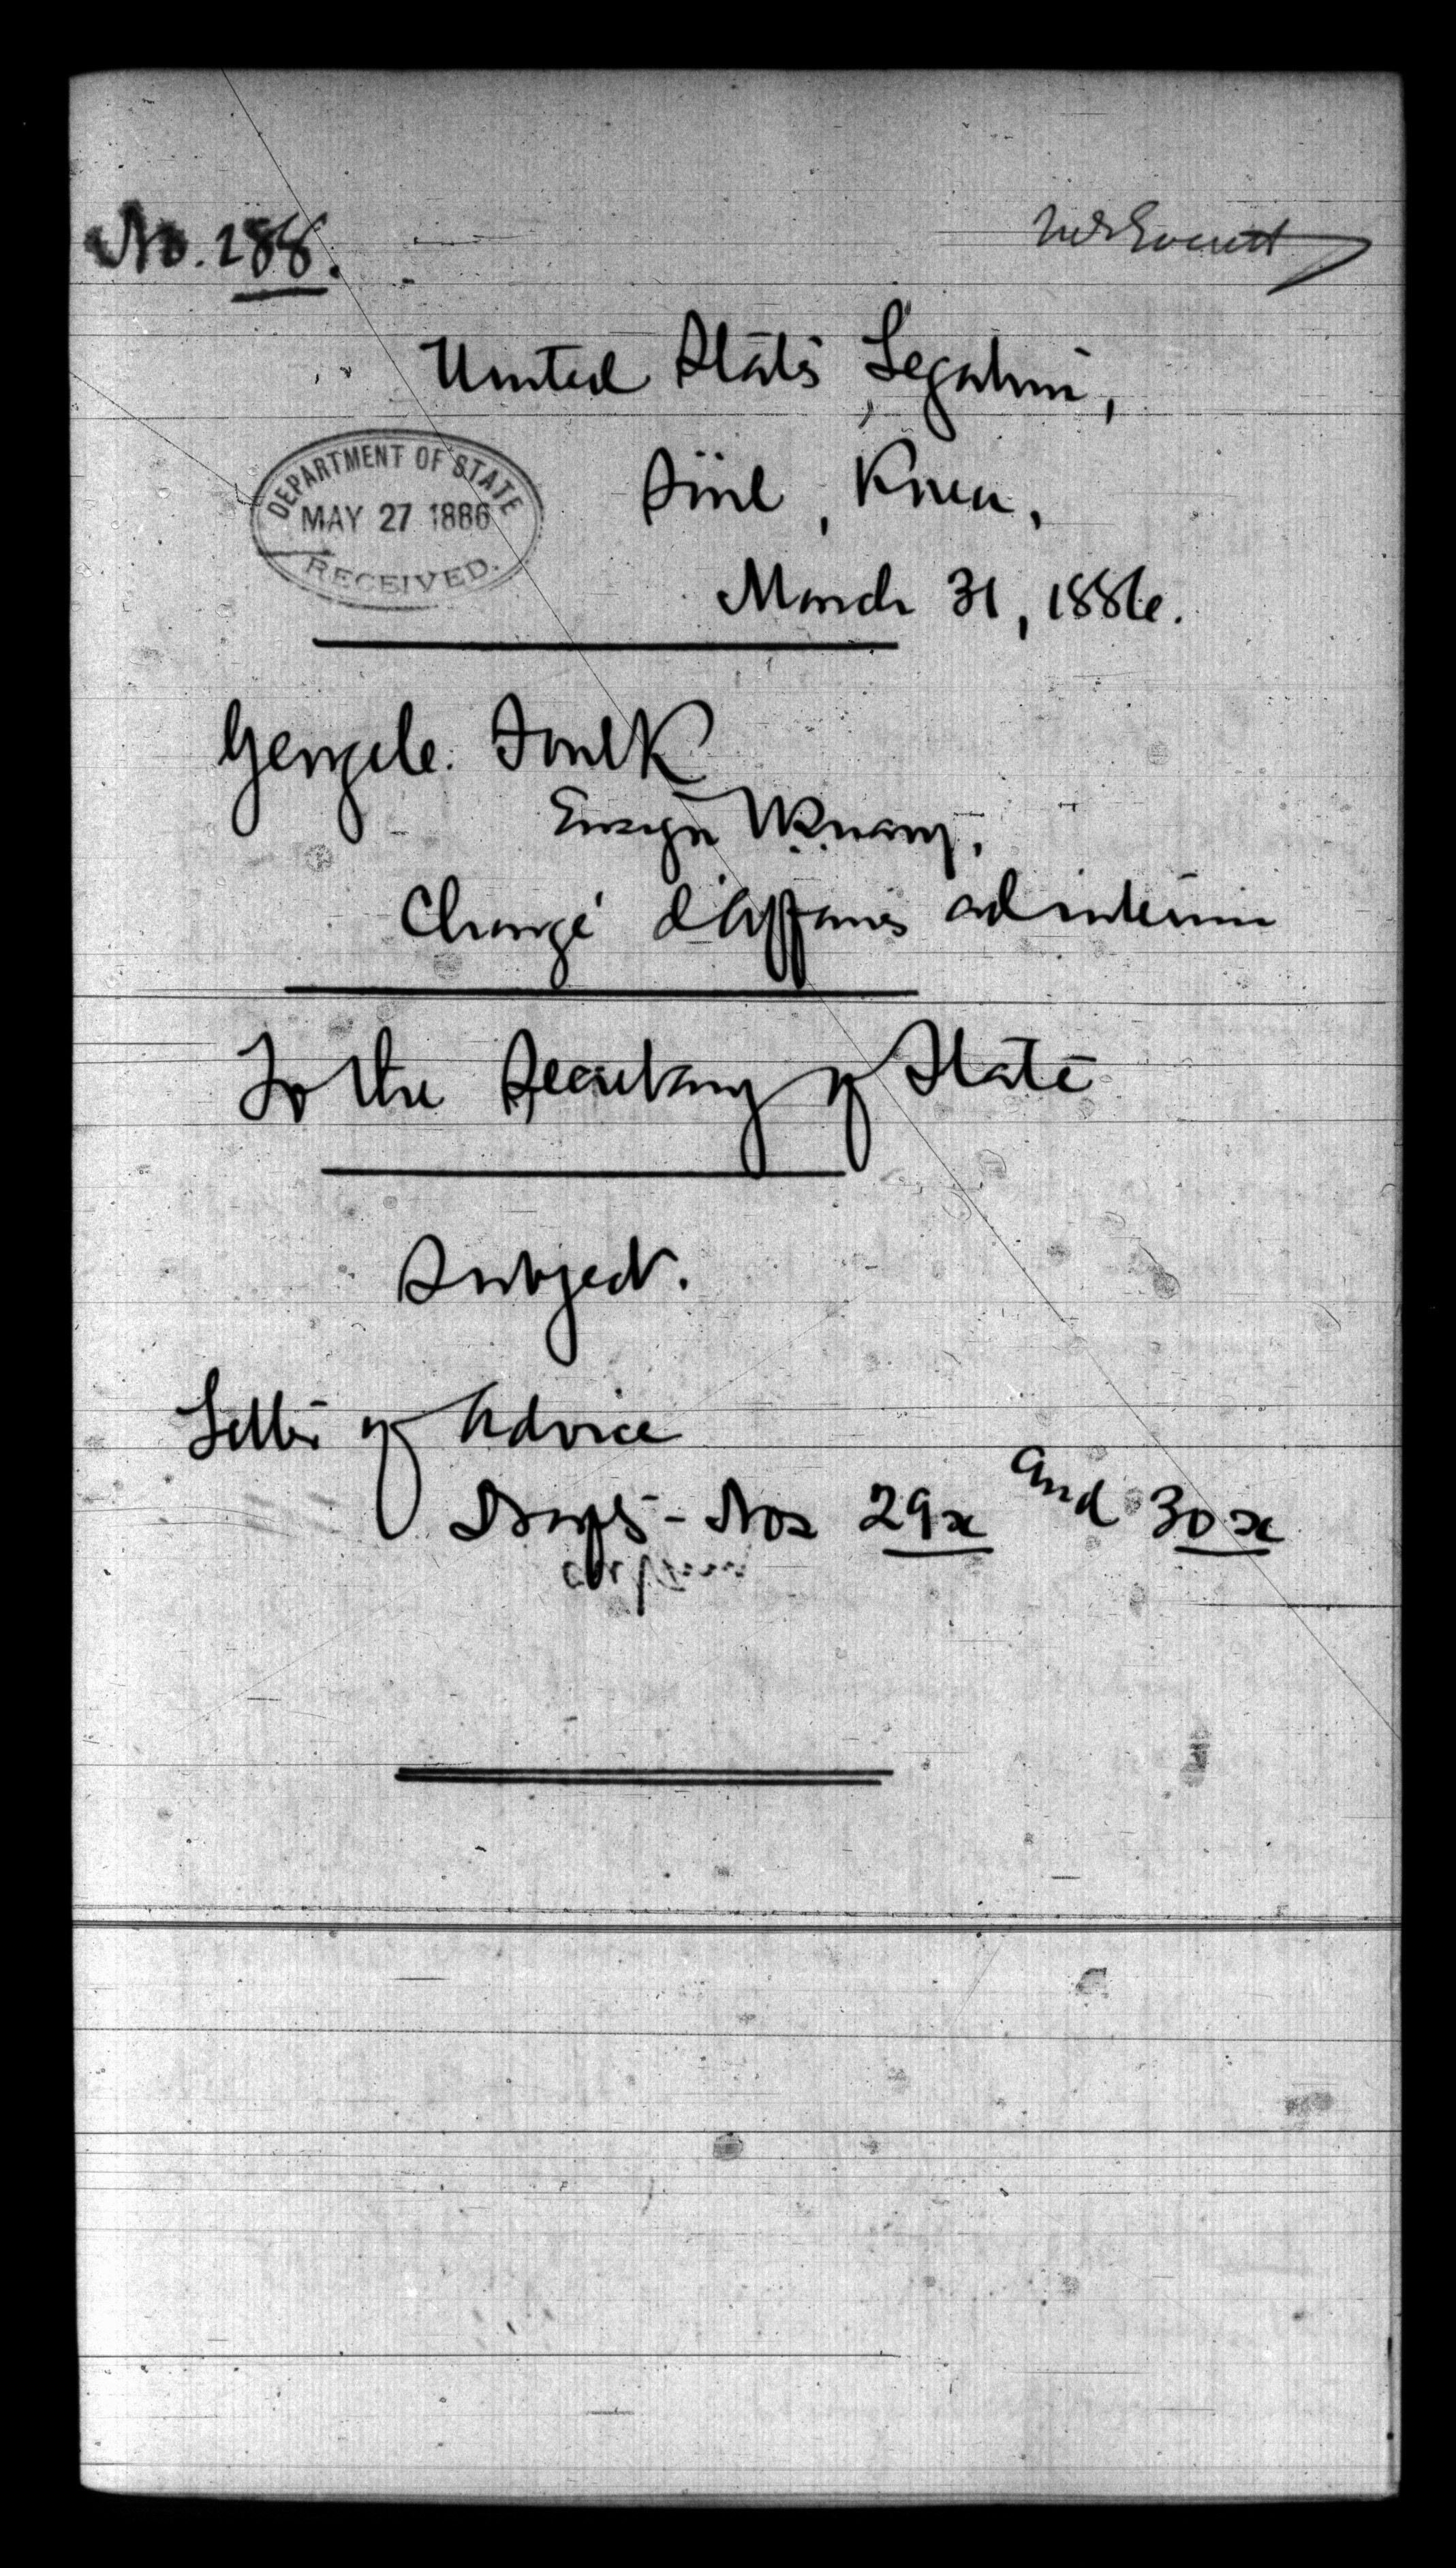 No. 288.
Mr Everett
United States Legation,
Söul, Korea,
DEPARTMENT OF STATE
MAY 27 1886
RECEIVED.
March 31, 1886.
George C. Foulk
Ensign U.S. Navy,
Chargé d'Affaires ad interim
To the Secretary of State
Subject.
Letter of Advice
Drafts - Nos 29x and 30x